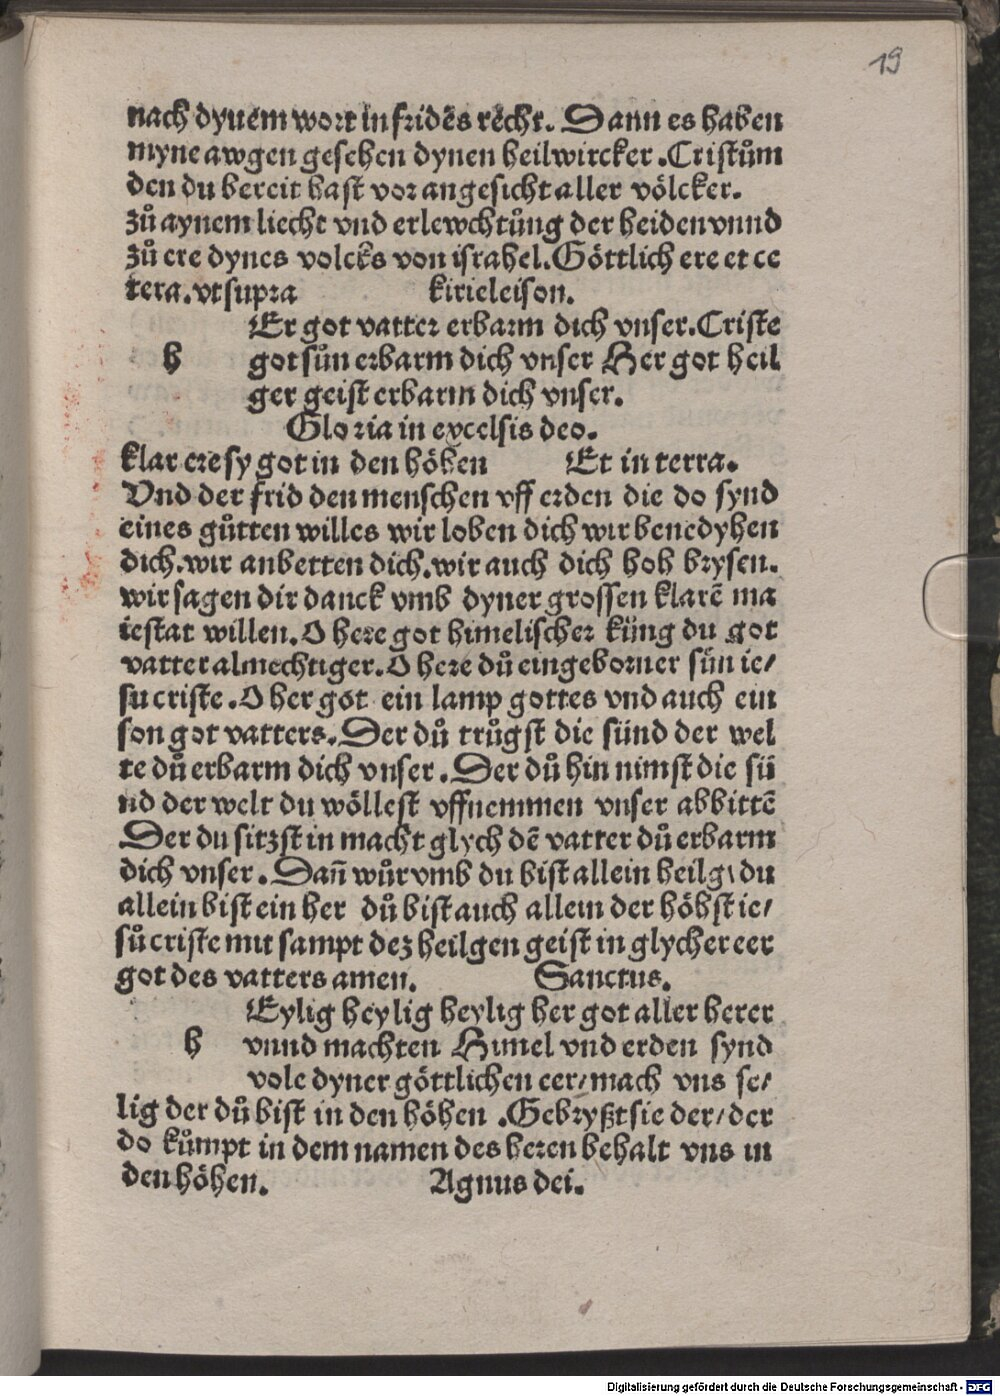 19
nach dynem wort in fridēs rècht. Dann es haben
myne awgen gesehen dynen heilwircker. Cristům
den du bereit hast vor angesicht aller völcker.
zů aynem liecht vnd erlewchtůng der heiden vnnd
zů ere dynes volcks von israhel. Göttlich ere et ce
tera. vt supra kirieleison.
Er got vatter erbarm dich vnser. Criste
h got sůn erbarm dich vnser Her got heil
ger geist erbarm dich vnser.
Gloria in excelsis deo.
klar ere sy got in den höhen Et in terra.
Vnd der frid den menschen vff erden die do synd
eines gůtten willes wir loben dich wir benedyhen
dich. wir anbetten dich. wir auch dich hoh brysen.
wir sagen dir danck vmb dyner grossen klarē ma
iestat willen. O here got himelischer küng du got
vatter almechtiger. O here dů eingeborner sün ie/
su criste. O her got ein lamp gottes vnd auch ein
son got vatters. Der dů trůgst die sünd der wel
te dů erbarm dich vnser. Der dů hin nimst die sü
nd der welt du wöllest vffnemmen vnser abbittē
Der du sitzst in macht glych dē vatter dů erbarm
dich vnser. Dañ wůrvmb du bist allein heilg du
allein bist ein her dů bist auch allein der höhst ie/
sů criste mit sampt dez heilgen geist in glycher eer
got des vatters amen. Sanctus.
Eylig heylig heylig her got aller herer
h vnnd machten Himel vnd erden synd
vole dyner göttlichen eer/mach vns se/
lig der dů bist in den höhen. Gebryßt sie der/der
do kůmpt in dem namen des heren behalt vns in
den höhen. Agnus dei.
Digitalisierung gefördert durch die Deutsche Forschungsgemeinschaft - DFG